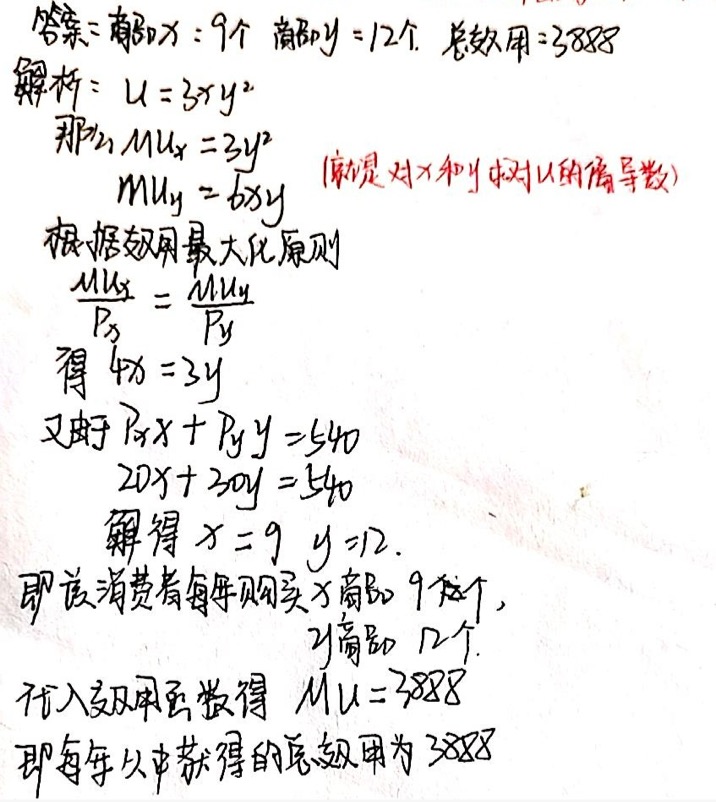 答案：商品x：9个 商品y=12个. 总效用=3888
解析：U=3xy²
那么 MUx=3y²
MUy=6xy
(就是对x和y求对U的偏导数)
根据效用最大化原则
MUx/Px = MUy/Py
得 4x=3y
又由于 Pxx+Pyy=540
20x+30y=540
解得 x=9 y=12.
即该消费者每年购买x商品 9个,
y商品 12个.
代入效用函数得 MU=3888
即每年从中获得的总效用为3888